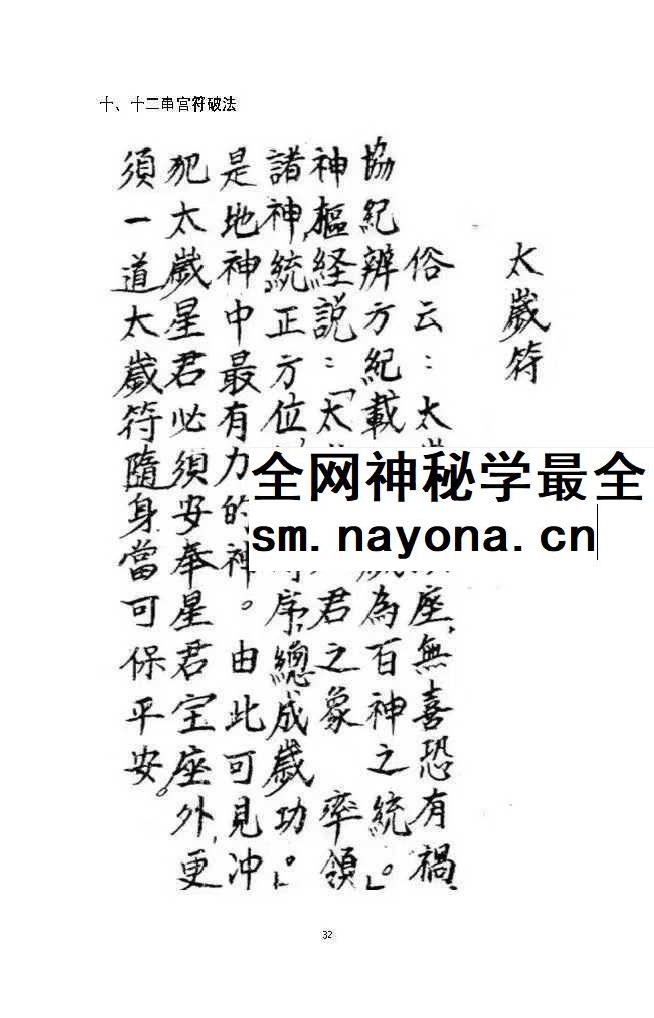 十、十二串宫符破法
太歲符
俗云：太座,無喜恐有禍
協紀辨方紀載為百神之統。」
神樞経説：「太君之象 率領
諸神,統正方位,序,總成歲功。」
是地神中最有力的神。由此可見冲
犯太歲星君必須安奉星君宝座外,更
須一道太歲符隨身當可保平安。
全网神秘学最全
sm.nayona.cn
32